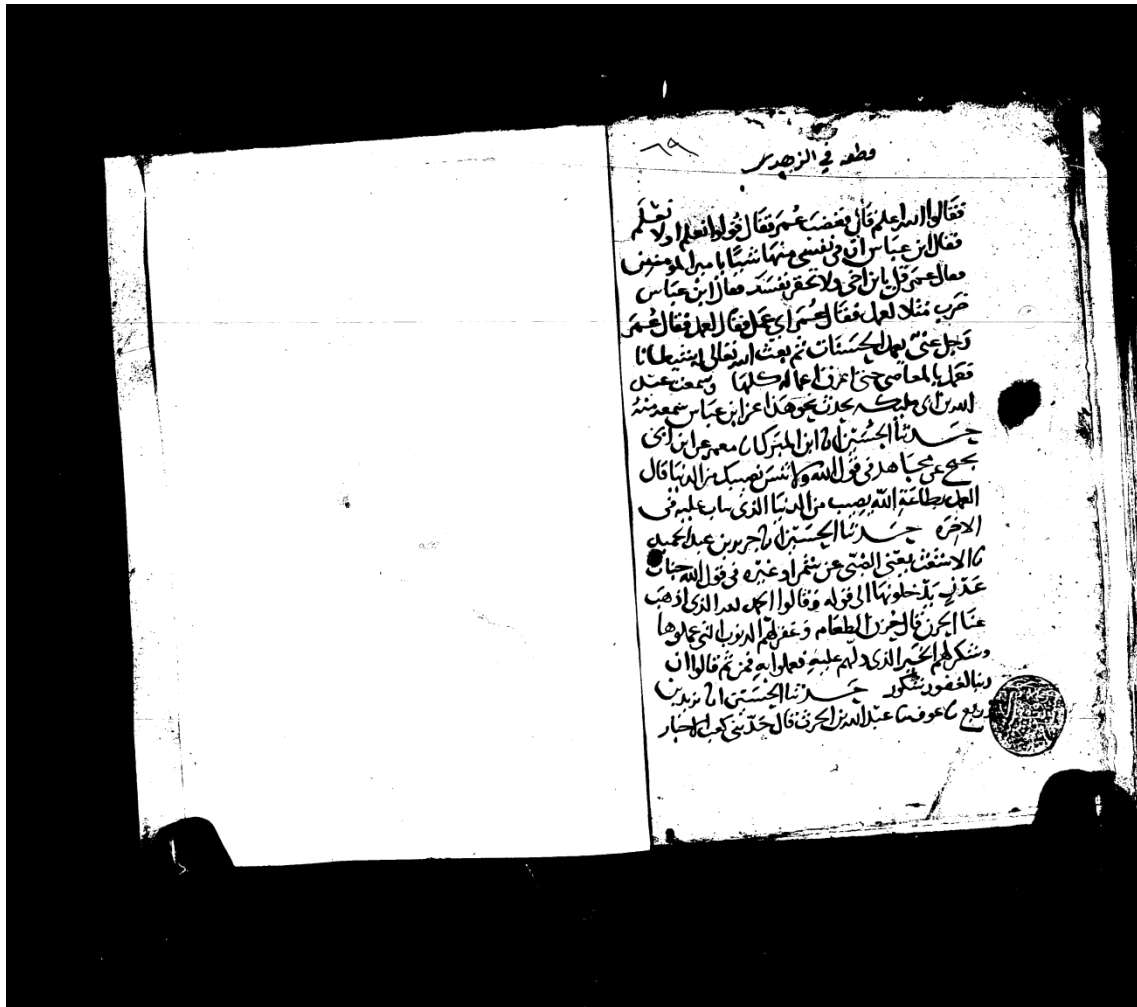 ٦٩
قطعه في الزهد
فقالوا الله اعلم قال فغضب عُمر فقال قولوا نعلم او لا نعلم
فقال ابن عباس ان في نفسي منها شيئًا يا مير المومنين
فقال عمر قل يا ابن اخي ولا تحقر نفسك فقال ابن عباس
ضرب مثلا لعمل فقال عُمر اي عمل فقال لعمل فقال عُمر
رجل غني يعمل الحسنات ثم بعث الله تعالى له شيطانا
فعمل بالمعاصي حتى اغرق اعماله كلها وسمعت عبد
الله بن ابي مليكه يحدث نحو هذا عن ابن عباس سمعه منهُ
حدثنا الحُسين انا ابن المبرك انا معمر عن ابن ابي
نجيح عن مجاهد في قول الله ولا تنس نصيبك من الدنيا قال
العمل بطاعة الله نصيب من الدنيا الذي يثاب عليه في
الاخرة حدثنا الحسين انا جرير بن عبد الحميد
نا الاشعث يعني القُمّي عن شمر او غيره في قول الله جنات
عَدْنٍ يَدْخلونها الى قوله وقالوا الحمد لله الذي اذهب
عنا الحزن قال حزن الطعام وغفر لهم الذنوب التي عملوها
وشكر لهم الخير الذي دلهم عليه فعملوا به فمن ثم قالوا ان
ربنا لغفور شكور حدثنا الحسين انا يزيد بن
زريع نا عوف نا عبد الله بن الحرث قال حدثني كعب الاحبار